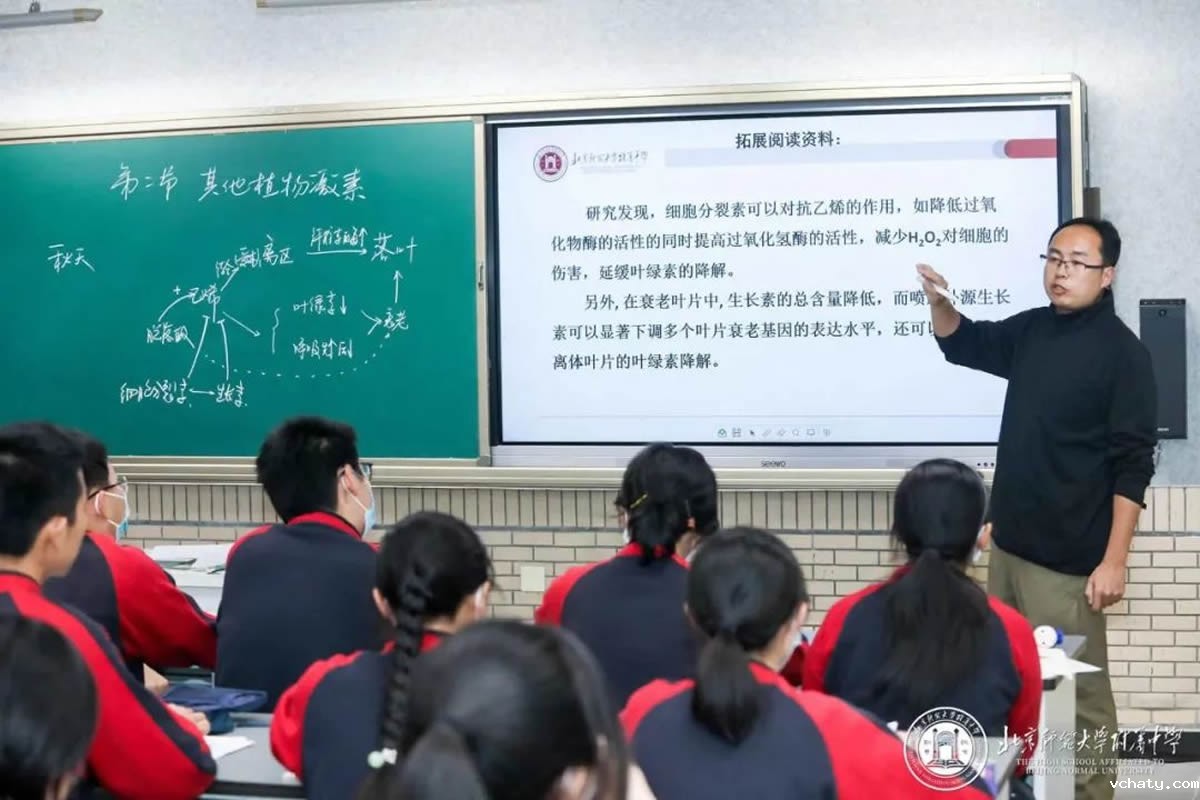 第二节 其他植物激素
秋天
脱落酸
+乙烯
离区
落叶
叶绿素↓
呼吸
衰老
细胞分裂素
生长素
北京师范大学附属中学
拓展阅读资料：
研究发现，细胞分裂素可以对抗乙烯的作用，如降低过氧
化物酶的活性的同时提高过氧化氢酶的活性，减少H₂O₂对细胞的
伤害，延缓叶绿素的降解。
另外，在衰老叶片中，生长素的总含量降低，而喷 外源生长
素可以显著下调多个叶片衰老基因的表达水平，还可以
离体叶片的叶绿素降解。
seewo
北京师范大学附属中学
THE HIGH SCHOOL AFFILIATED TO
BEIJING NORMAL UNIVERSITY
vchaty.com